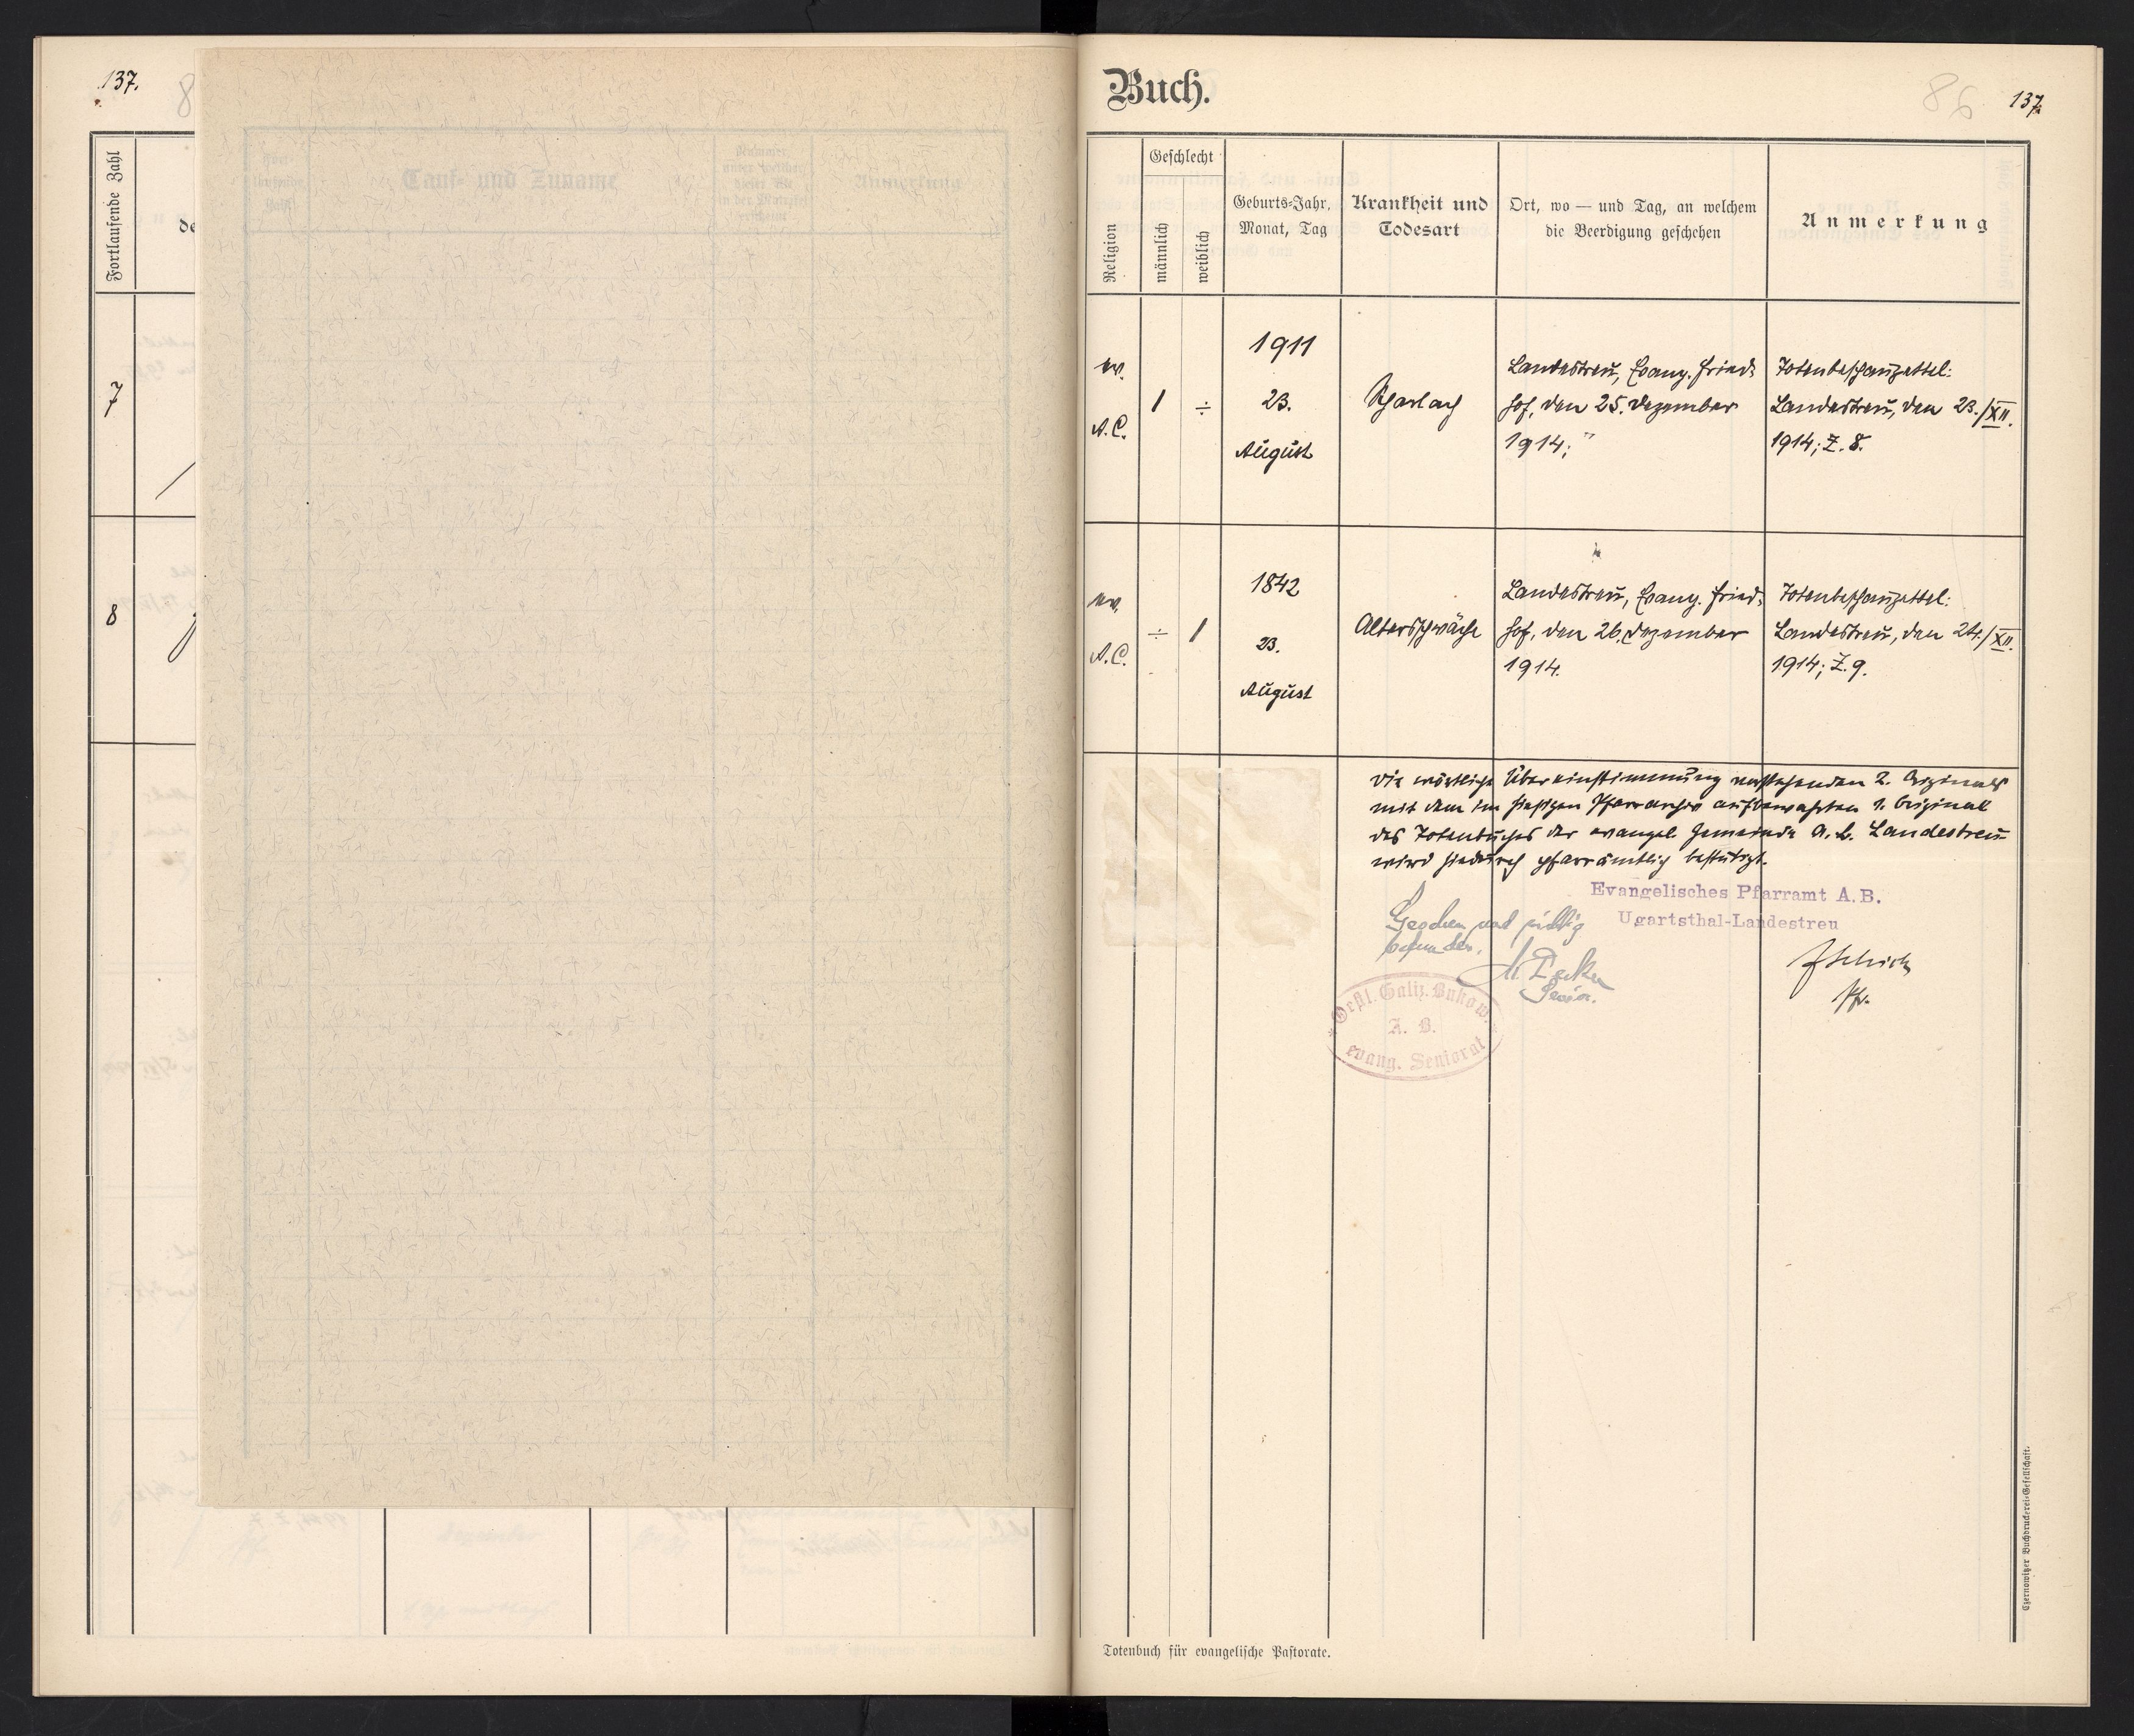 137.
8
Fortlaufende Zahl
de
7
8
Tauf- und Zuname
Anmerkung
Buch.
86
137.
Religion
Geschlecht
männlich
weiblich
Geburts-Jahr,
Monat, Tag
Krankheit und
Todesart
Ort, wo — und Tag, an welchem
die Beerdigung geschehen
Anmerkung
ev.
A.C.
1
÷
1911
23.
August
Scharlach
Landestreu, Evang. Fried-
hof, den 25. Dezember
1914;
Totenbeschauzettel:
Landestreu, den 23./XII.
1914; Z. 8.
ev.
A.C.
÷
1
1842
23.
August
Altersschwäche
Landestreu, Evang. Fried-
hof, den 26. Dezember
1914.
Totenbeschauzettel:
Landestreu, den 24./XII.
1914; Z. 9.
Die wörtliche Übereinstimmung vorstehenden 2. Originals
mit dem im hiesigen Pfarrarchiv aufbewahrten 1. Original
des Totenbuches der evangel. Gemeinde A. B. Landestreu
wird hiedurch pfarrämtlich bestätigt.
Evangelisches Pfarramt A.B.
Ugartsthal-Landestreu
Gesehen und richtig
befunden.
Senior.
Pfr.
Galiz. Bukow.
A. B.
evang. Seniorat
Totenbuch für evangelische Pastorate.
Czernowitzer Buchdruckerei-Gesellschaft.